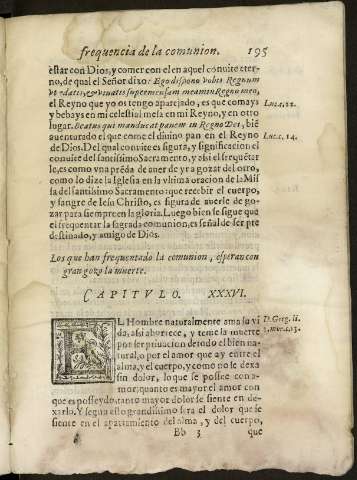 frequencia de la comunion. 195
estar con Dios, y comer con el en aquel conuite eter-
no, de qual el Señor dixo: Ego dispono vobis Regnum
vt edatis, & vivatis super mensam meam in Regno meo,
el Reyno que yo os tengo aparejado, es que comays Luc. 22.
y bebays en mi celestial mesa en mi Reyno, y en otro
lugar. Beatus qui manducat panem in Regno Dei, biē Luc. 14.
auenturado el que come el diuino pan en el Reyno
de Dios. Del qual conuite es figura, y significacion el
conuite del santissimo Sacramento, y assi el frequētar
le, es como vna prēda de auer de yr a gozar del otro,
como lo dize la Iglesia en la vltima oracion de la Mis
sa del santissimo Sacramento: que recebir el cuerpo,
y sangre de Iesu Christo, es figura de auerle de go-
zar para siempre en la gloria. Luego bien se sigue que
el frequentar la sagrada comunion, es señal de ser pre
destinado, y amigo de Dios.
Los que han frequentado la comunion, esperan con
gran gozo la muerte.
CAPITVLO. XXXVI.
EL Hombre naturalmente ama su vi D. Greg. li.
da, assi aborrece, y teme la muerte
por ser priuacion de todo el bien na-
tural, o por el amor que ay entre el
alma, y el cuerpo, y como no se dexa
sin dolor, lo que se possee con a-
mor; quanto es mayor el amor con
que es posseydo, tanto mayor dolor se siente en de-
xarlo. Y segun esto grandissimo sera el dolor que se
siente en el apartamiento del alma, y del cuerpo,
Bb 3 que